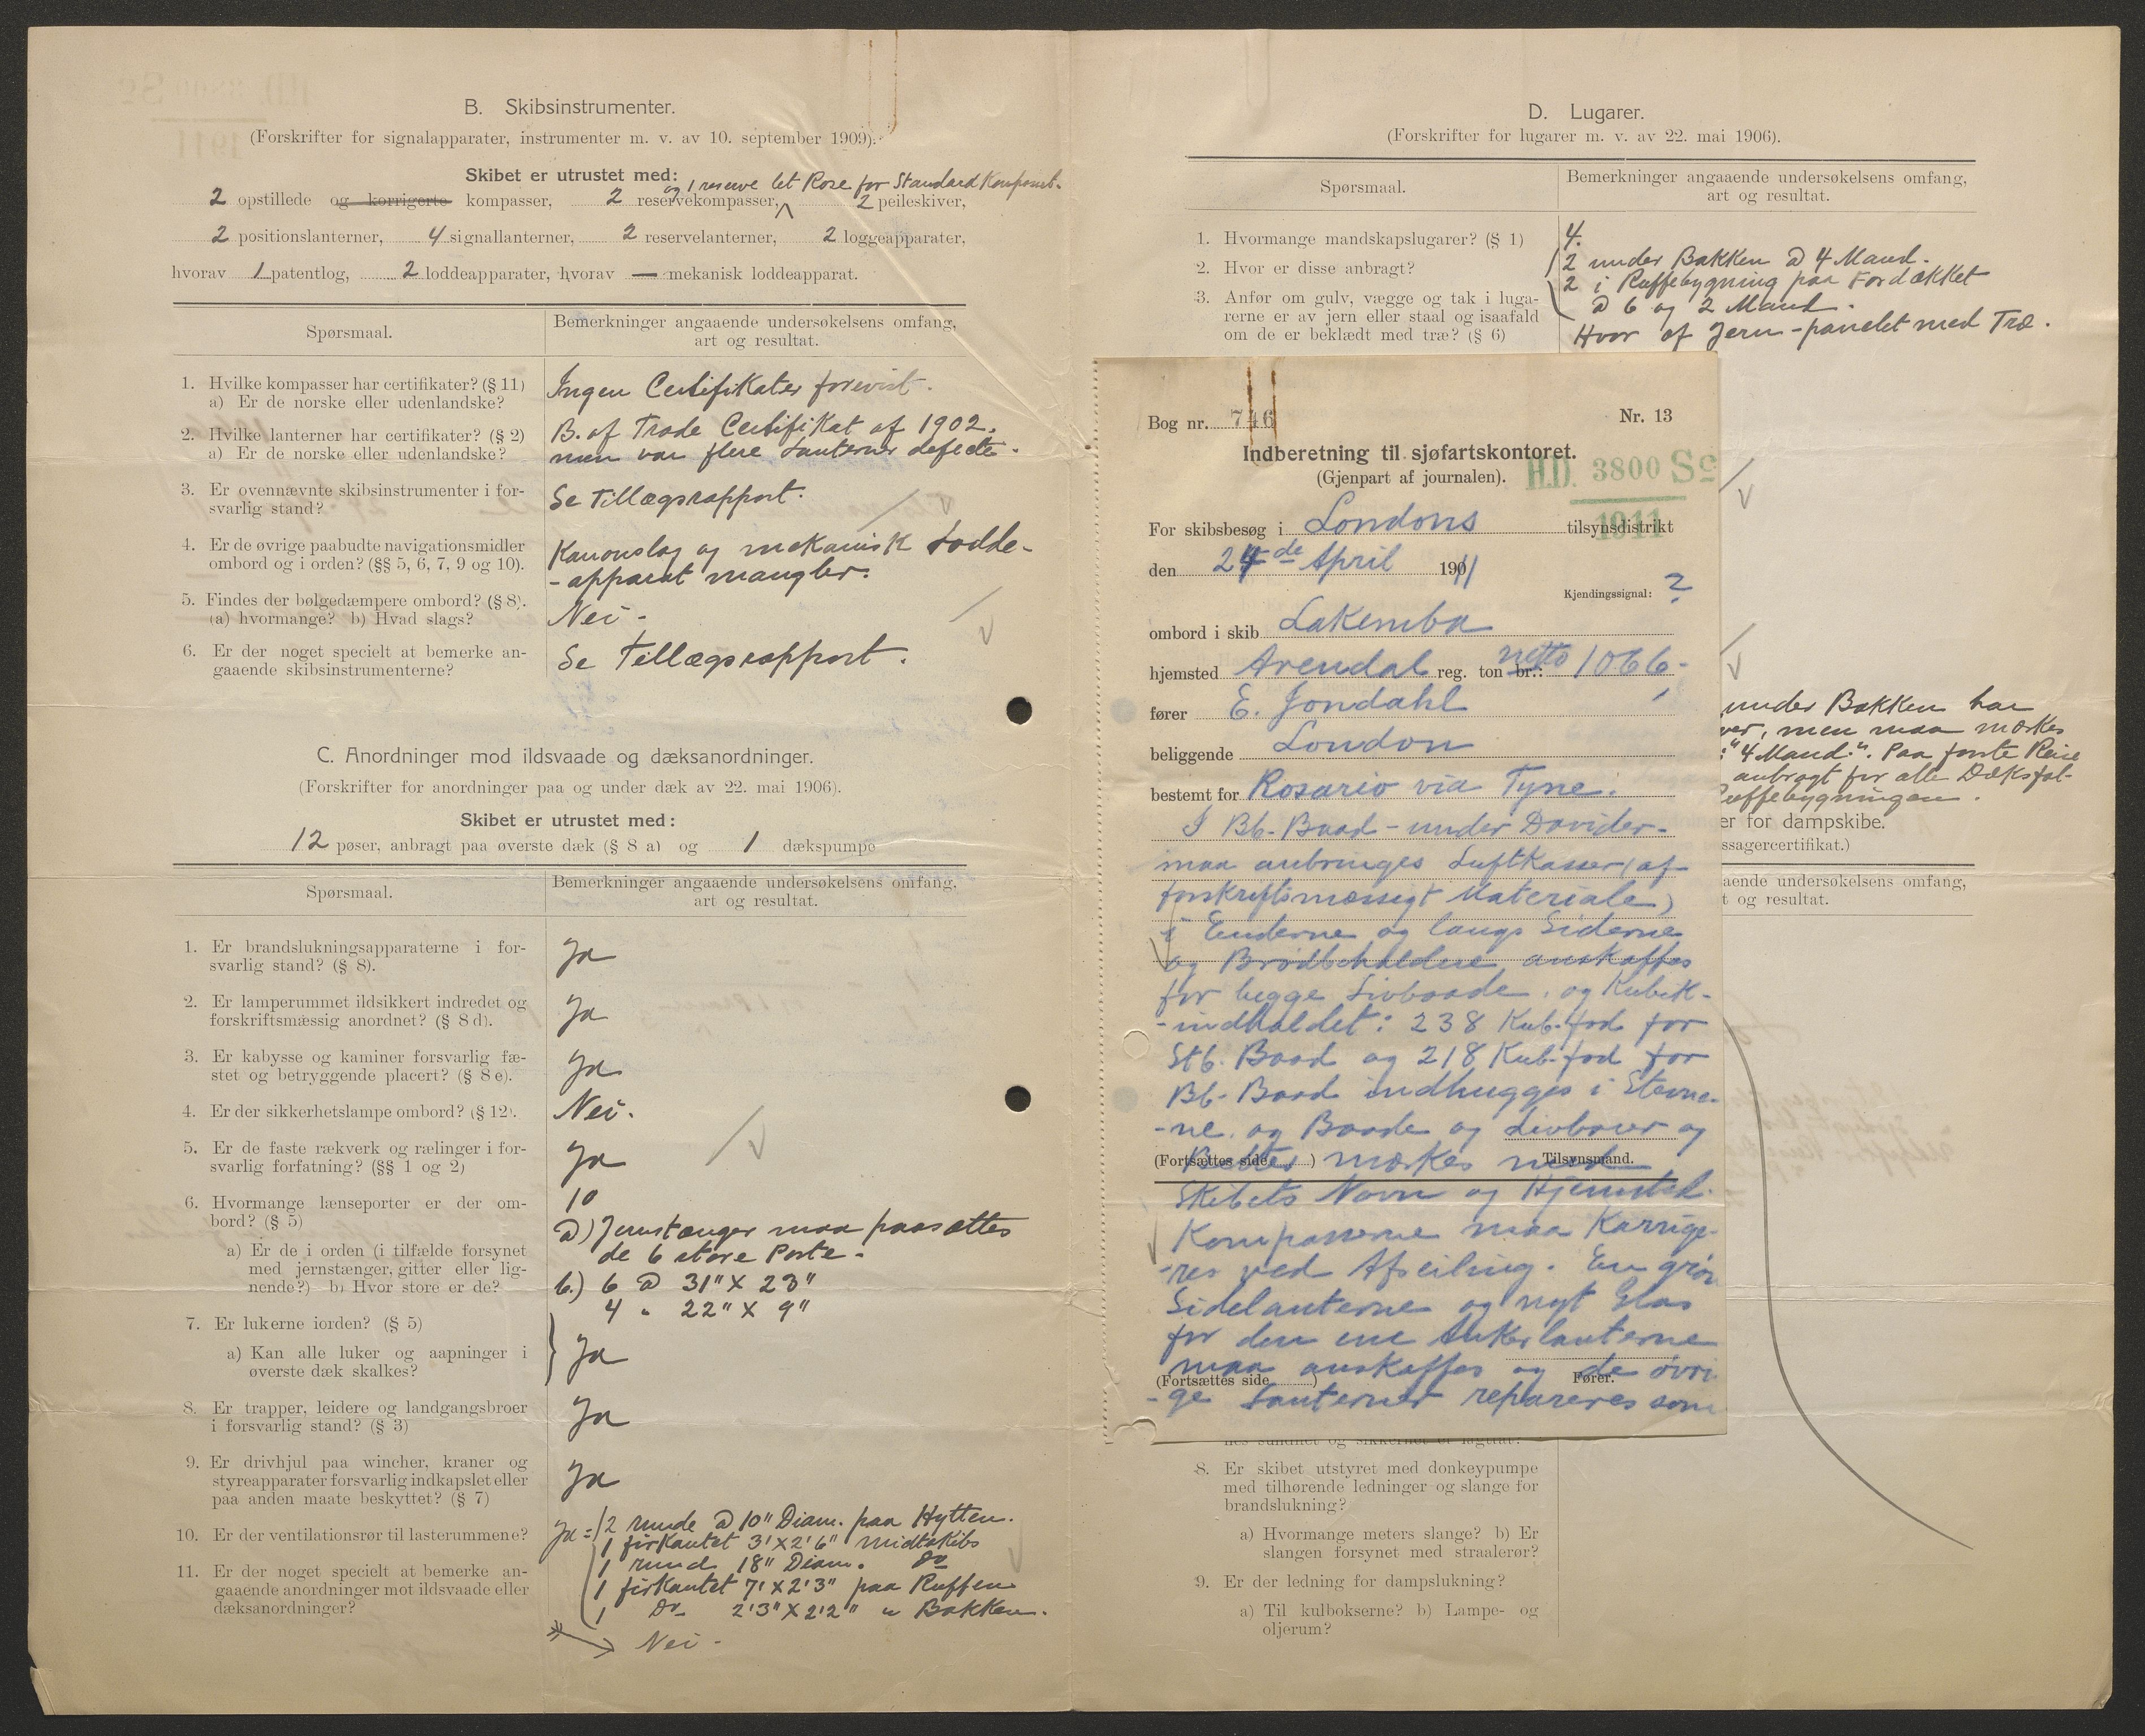 B. Skibsinstrumenter.
(Forskrifter for signalapparater, instrumenter m. v. av 10. september 1909).
Skibet er utrustet med:
og 1 reserve let Rose for Standard Kompasset.
2 opstillede og korrigerte kompasser, 2 reservekompasser, 2 peileskiver,
2 positionslanterner, 4 signallanterner, 2 reservelanterner, 2 loggeapparater,
hvorav 1 patentlog, 2 loddeapparater, hvorav — mekanisk loddeapparat.
Spørsmaal.
Bemerkninger angaaende undersøkelsens omfang,
art og resultat.
1. Hvilke kompasser har certifikater? (§ 11)
a) Er de norske eller udenlandske?
Ingen Certifikater forevist.
2. Hvilke lanterner har certifikater? (§ 2)
a) Er de norske eller udenlandske?
B. of Trade Certifikat af 1902.
men var flere Lanterner defecte.
3. Er ovennævnte skibsinstrumenter i for-
svarlig stand?
Se Tillægsrapport.
4. Er de øvrige paabudte navigationsmidler
ombord og i orden? (§§ 5, 6, 7, 9 og 10).
Kanonslag og mekanisk Lodde-
-apparat mangler.
5. Findes der bølgedæmpere ombord? (§ 8).
(a) hvormange? b) Hvad slags?
Nei -
6. Er der noget specielt at bemerke an-
gaaende skibsinstrumenterne?
Se Tillægsrapport.
C. Anordninger mod ildsvaade og dæksanordninger.
(Forskrifter for anordninger paa og under dæk av 22. mai 1906).
Skibet er utrustet med:
12 pøser, anbragt paa øverste dæk (§ 8 a) og 1 dækspumpe
Spørsmaal.
Bemerkninger angaaende undersøkelsens omfang,
art og resultat.
1. Er brandslukningsapparaterne i for-
svarlig stand? (§ 8).
Ja
2. Er lamperummet ildsikkert indredet og
forskriftsmæssig anordnet? (§ 8 d).
Ja
3. Er kabysse og kaminer forsvarlig fæ-
stet og betryggende placert? (§ 8 e).
Ja
4. Er der sikkerhetslampe ombord? (§ 12).
Nei.
5. Er de faste rækverk og rælinger i for-
svarlig forfatning? (§§ 1 og 2)
Ja
6. Hvormange lænseporter er der om-
bord? (§ 5)
10
a) Er de i orden (i tilfælde forsynet
med jernstænger, gitter eller lig-
nende?) b) Hvor store er de?
a) Jernstænger maa paasættes
de 6 store Porte.
b.) 6 a 31" X 23"
4 " 22" X 9"
7. Er lukerne iorden? (§ 5)
a) Kan alle luker og aapninger i
øverste dæk skalkes?
Ja
8. Er trapper, leidere og landgangsbroer
i forsvarlig stand? (§ 3)
Ja
9. Er drivhjul paa wincher, kraner og
styreapparater forsvarlig indkapslet eller
paa anden maate beskyttet? (§ 7)
Ja
10. Er der ventilationsrør til lasterummene?
Ja = 2 runde a 10" Diam. paa Hytten.
1 firkantet 3' X 2'6" midtskibs
1 rund 18" Diam. Do
1 firkantet 7' X 2'3" paa Ruffen
1 Do 2'3" X 2'2" " Bakken.
11. Er der noget specielt at bemerke an-
gaaende anordninger mot ildsvaade eller
dæksanordninger?
Nei -
D. Lugarer.
(Forskrifter for lugarer m. v. av 22. mai 1906).
Spørsmaal.
Bemerkninger angaaende undersøkelsens omfang,
art og resultat.
1. Hvormange mandskapslugarer? (§ 1)
4.
2. Hvor er disse anbragt?
2 under Bakken a 4 Mand.
2 i Ruffebygning paa Fordækket
a 6 og 2 Mand.
3. Anfør om gulv, vægge og tak i luga-
rerne er av jern eller staal og isaafald
om de er beklædt med træ? (§ 6)
Hvor af Jern - panelet med Træ.
Bog nr. 746
Nr. 13
Indberetning til sjøfartskontoret.
(Gjenpart af journalen).
H.D. 3800 Sø
1911
For skibsbesøg i Londons tilsynsdistrikt
den 24de April 1911
Kjendingssignal: ?
ombord i skib Lakemba
hjemsted Arendal reg. ton br.: netto 1066-
fører E. Jondahl
beliggende London
bestemt for Rosario via Tyne.
I Bb. Baad - under Davider-
maa anbringes Luftkasser (af
forskriftsmæssigt Materiale)
i Enderne og langs Siderne
og Brødbeholdere anskaffes
for begge Livbaade, og Kubik-
-indholdet: 238 Kub. fod for
Stb. Baad og 218 Kub. fod for
Bb. Baad indhugges i Stevne-
-ne. og Baade og Livbøier og
(Fortsættes side ) Tilsynsmand.
mærkes med
Skibets Navn og Hjemsted.
Kompasserne maa Korrige-
-res ved Afseiling. En grøn
Sidelanterne og nyt Glas
for den ene Ankerlanterne
maa anskaffes og de øvri
(Fortsættes side ) Fører.
-ge Lanterner repareres som
under Bakken har
ver, men maa mærkes
"4 Mand". Paa første Reise
anbragt for alle Dæksfol-
Ruffebygningen.
er for dampskibe.
ssagercertifikat.)
aende undersøkelsens omfang,
t og resultat.
nes sundhet og sikkerhet er iagttat?
8. Er skibet utstyret med donkeypumpe
med tilhørende ledninger og slange for
brandslukning?
a) Hvormange meters slange? b) Er
slangen forsynet med straalerør?
9. Er der ledning for dampslukning?
a) Til kulbokserne? b) Lampe- og
oljerum?